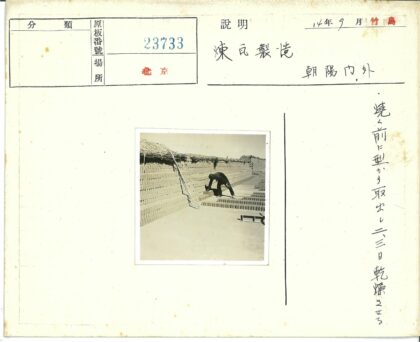 分類
原板番號
23733
場所
北京
説明
14年9月
竹島
煉瓦製造
朝陽門外
・焼く前に型から取出し二、三日乾燥させる